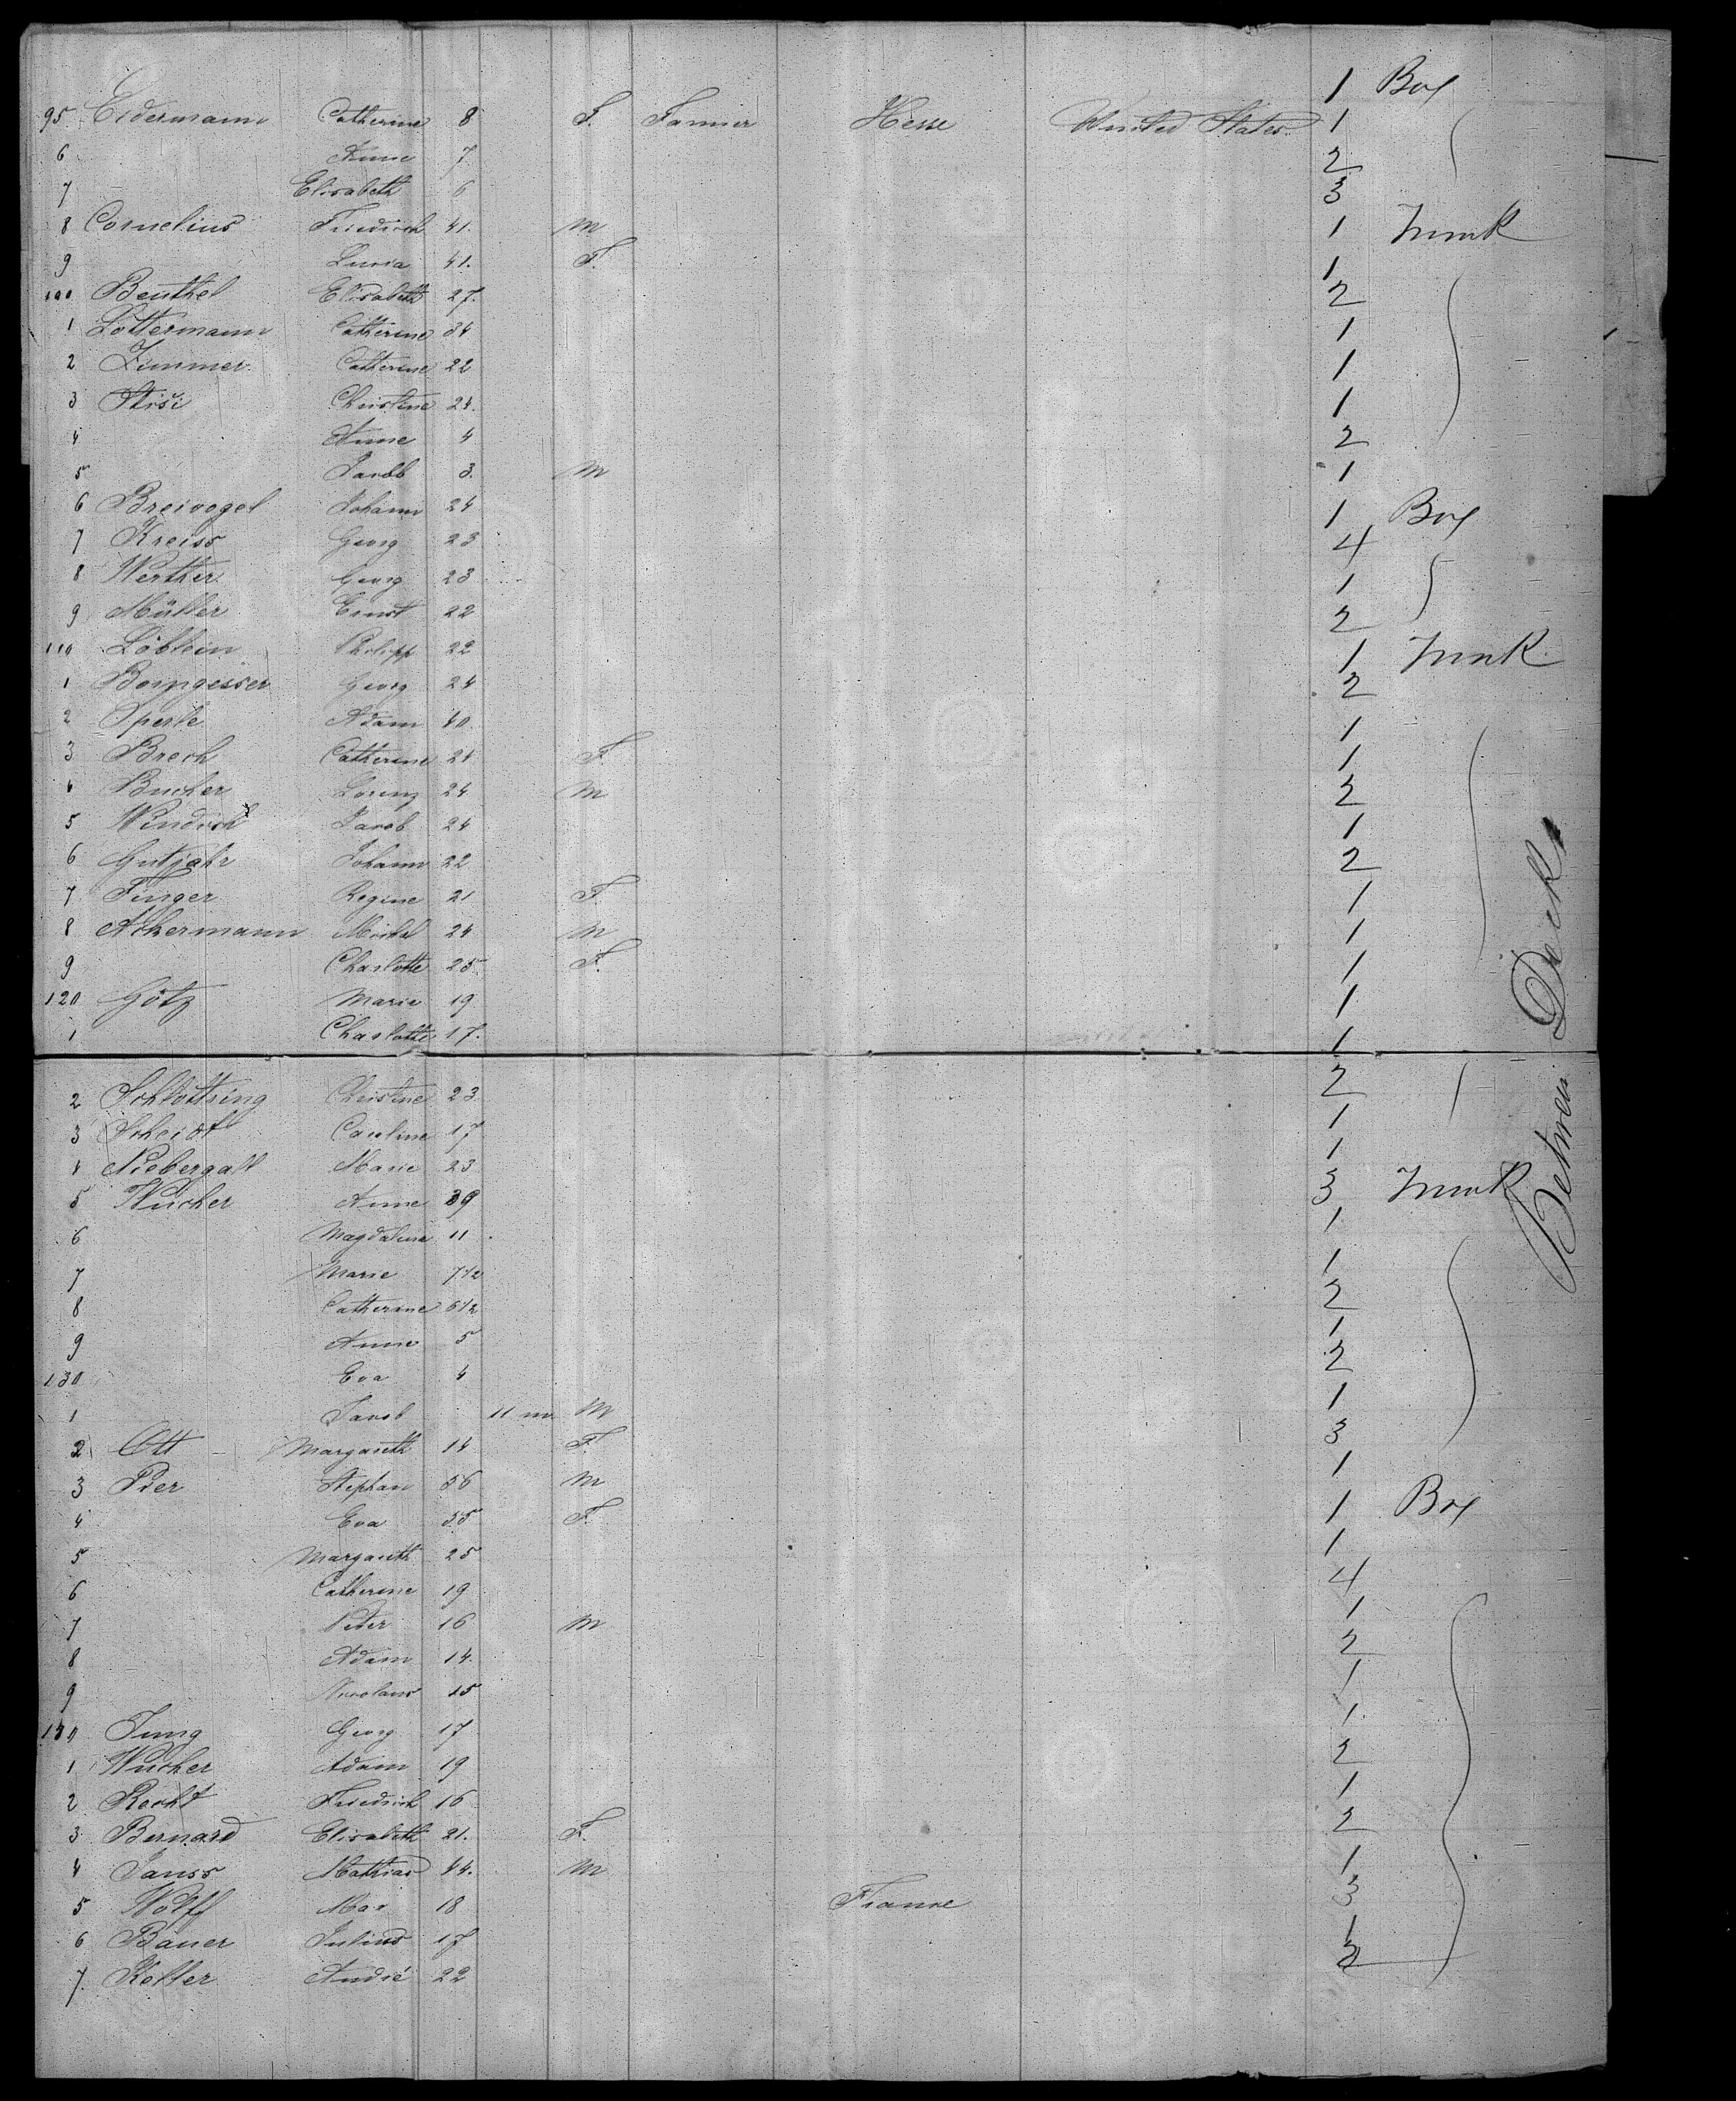 1 Box
95 Eidermann Catherine 8 F. Farmer Hesse United States. 1
6 Anne 7 2
7 Elisabeth 6 3
8 Cornelius Friedrich 41. M 1 Trunk
9 Luisa 41. F. 1
100 Beuthel Elisabeth 27. 2
1 Lottermann Catherine 34 1
2 Zimmer Catherine 22 1
3 Christine 24. 1
4 Anne 4 2
5 Jacob 3. M 1
6 Breivogel Johann 24 1 Box
7 Kreiss Georg 23 4
8 Werther Georg 23 1
9 Müller Ernst 22 2
110 Löblein Philipp 22 1 Trunk
1 Georg 24 2
2 Sperle Adam 40. 1
3 Brech Catherine 24 F 1
4 Bucher Lorenz 24 M 2
5 Jacob 24 1
6 Gutjahr Johann 22 2
7 Finger Regine 21 F. 1
8 Ackermann Michel 24 M 1
9 Charlotte 25. F. 1
120 Götz Marie 19 1
1 Charlotte 17. 1
2 Christine 23 2
3 Scheidt Caroline 17 1
4 Niebergall Marie 23 1
5 Wucher Anne 39 3 Trunk
6 Magdalena 11 1
7 Marie 7 1/2 1
8 Catherine 6 1/2 2
9 Anne 5 1
130 Eva 4 2
1 Jacob 11 mo M 1
2 Ott Margareth 14 F. 3
3 Pier Stephan 56 M 1
4 Eva 55 F. 1 Box
5 Margareth 25 1
6 Catherine 19 4
7 Peter 16 M 1
8 Adam 14. 2
9 Nicolaus 15 1
140 Jung Georg 17 1.
1 Wucher Adam 19 2
2 Recht Friedrich 16 1
3 Bernard Elisabeth 21. F. 2
4 Janss Mathias 44. M 1
5 Wolff Max 18 France 3
6 Bauer Julius 17 1
7. Keller André 22 2
Between Decks